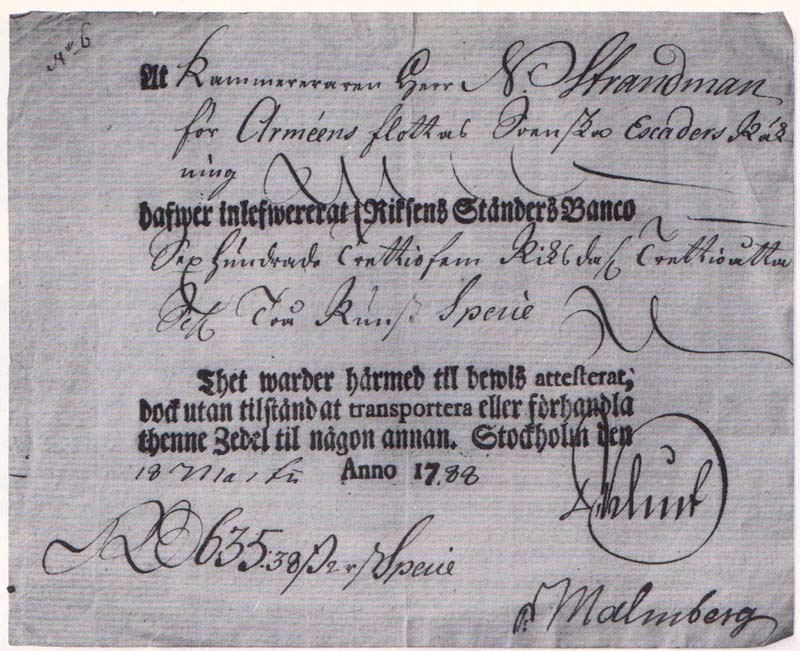 No. 6
At Kammereraren Herr N. Strandman
för Arméens flottas Svenska Escaders Räk
ning
hafwer inlefwererat i Riksens Ständers Banco
Sex hundrade Trettiofem Riksdal Trettioåtta
Två Runst Specie
Thet warder härmed til bewis attesterat;
dock utan tilstånd at transportera eller förhandla
thenne Zedel til någon annan. Stockholm den
18 Martii Anno 1788
RD 635:38 ß 2 rst Specie
Malmberg